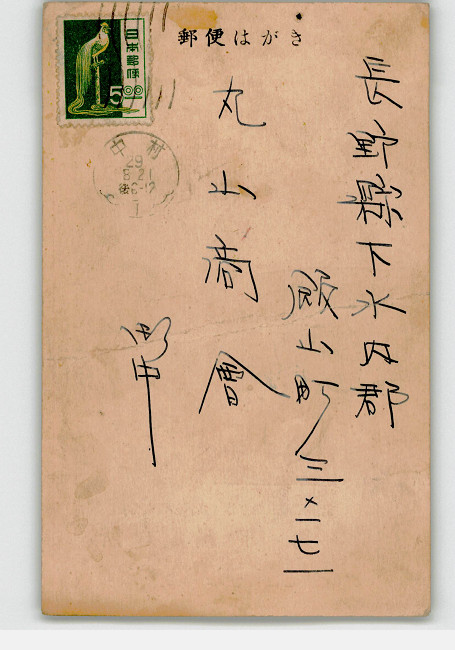 郵便はがき
日本郵便
5.00
中村
29
8.21
後6-12
長野縣下水内郡
飯山町
丸山商會
御中